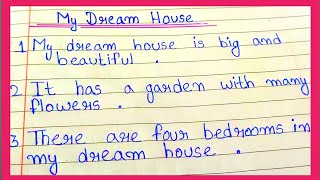 My Dream House
1 My dream house is big and
beautiful .
2 It has a garden with many
flowers .
3 There are four bedrooms in
my dream house .